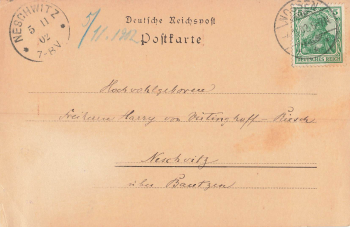 NESCHWITZ
5 11
02
7-8V.
5/11 1902
Deutsche Reichspost
Postkarte
DEUTSCHES REICH
Hochwohlgeboren
Freiherrn Harry von Vietinghoff Riesch
Neschwitz
über Bautzen